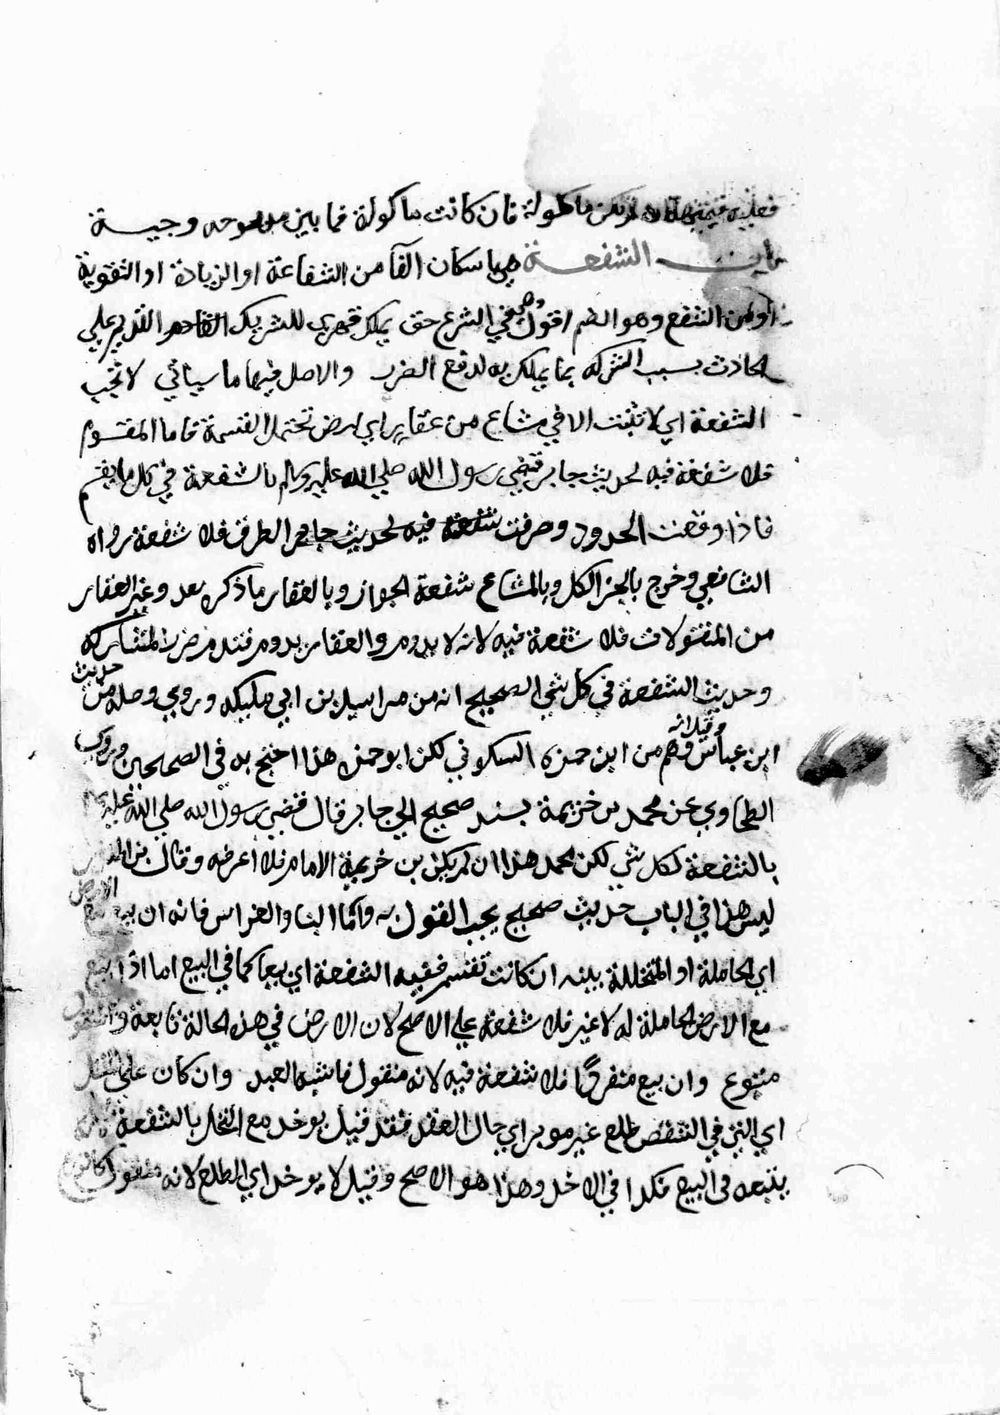 فعليه قيمتها ان لم تكن ماكولة فان كانت ماكولة فما بين مذبوحه وحيسة
باب الشفعة هي باسكان الفآ من الشفاعة او الزيادة او التقوية
او من الشفع وهو الضم اقول وهي في الشرع حق تملك قهري للشريك القديم علي
الحادث بسبب الشركه بما يملك به لدفع الضرر والاصل فيها ما سياتي لا تجب
الشفعة اي لا تثبت الا في مشاع من عقار اي ارض تحتمل القسمة فاما المقسوم
فلا شفعة فيه لحديث جابر قضي رسول الله صلي الله عليه وسلم بالشفعة في كل ما لم يقسم
فاذا وقعت الحدود وصرفت الطرق فلا شفعة رواه
الشافعي وخرج بالجزا الكل وبالمشاع شفعة الجوار وبالعقار ما ذكره بعد وغير العقار
من المنقولات فلا شفعة فيه لانه لا يدوم والعقار يدوم فيدوم ضرر المشاركه
وحديث الشفعة في كل شي الصحيح انه من مراسيل بن ابي مليكه وروي وصله من حديث
ابن عباس وقيل انه وهم من ابن حمزه السكوني لكن ابو حمزه هذا احتج به في الصحيحين وروي
الطحاوي عن محمد بن خزيمة بسند صحيح الي جابر قال قضي رسول الله صلي الله عليه
بالشفعة لكل شي لكن محمد هذا ان لم يكن بن خزيمة الامام فلا أعرفه وقال بن
ليس هذا في الباب حديث صحيح يجب القول به وأما البنا والغراس فانه ان بيع مع الارض
اي الحاملة او المتخللة بينه ان كانت تقسم ففيه الشفعة اي تبعا كما في البيع اما اذا بيع
مع الارض الحاملة له لا غير فلا شفعة علي الاصح لان الارض في هذه الحالة تابعة
متبوع وان بيع متفرقًا فلا شفعة فيه لانه منقول فاشبه العبد وان كان علي النخل
اي التي في الشقص طلع غير موبر اي حال العقد فقد قيل يوخذ مع النخل بالشفعة
بتبعه في البيع فكذا في الاخذ وهذا هو الاصح وقيل لا يوخذ اي الطلع لانه منقول